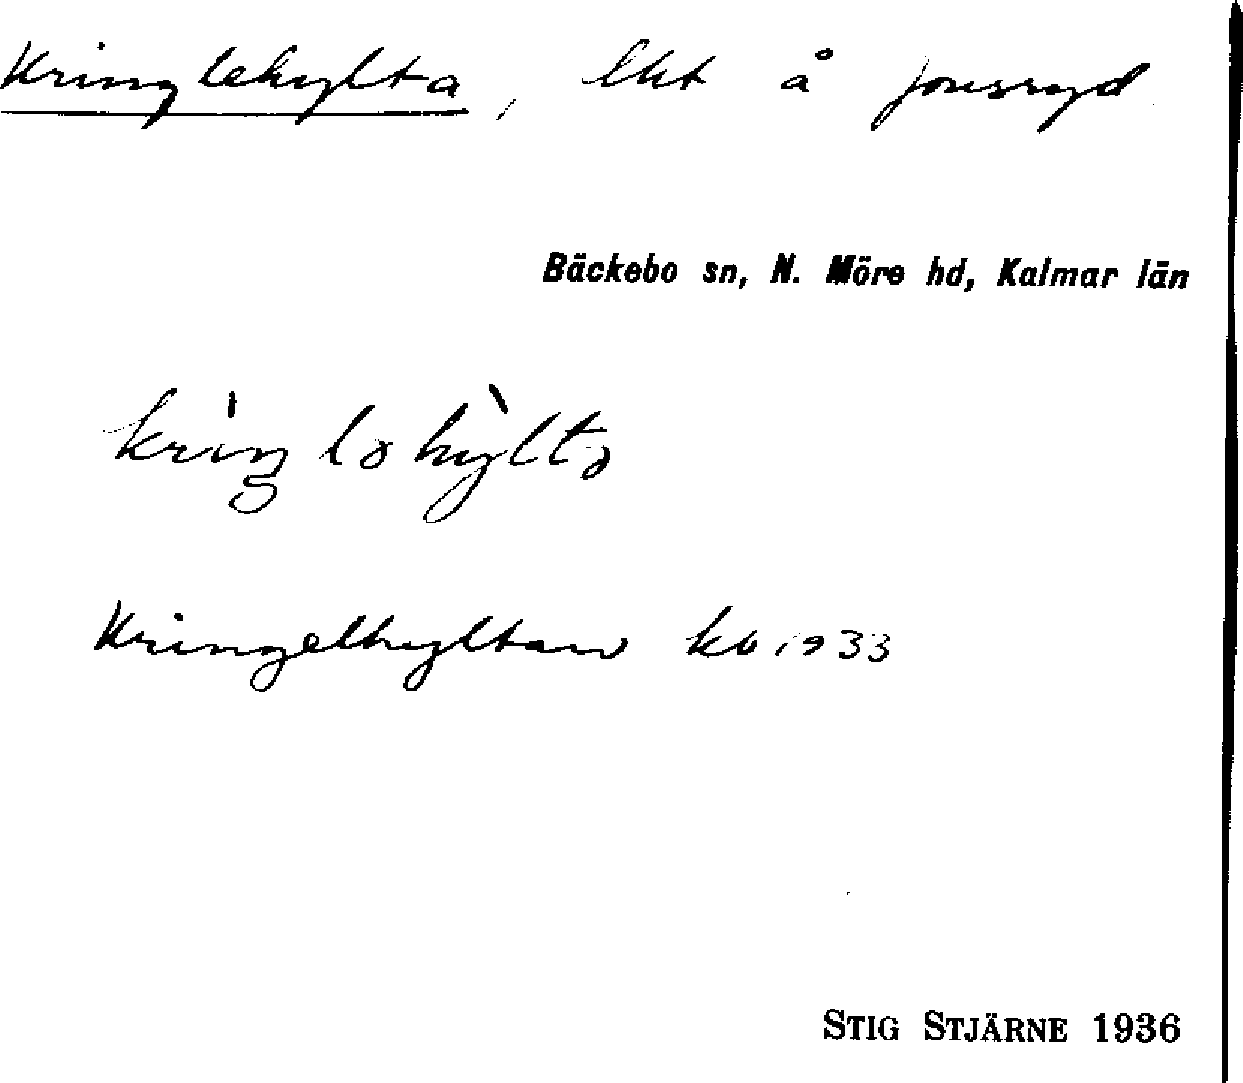 Kringlehylta, lht å Jonsryd
Bäckebo sn, N. Möre hd, Kalmar län
Kringelhyltan kb 1933
STIG STJÄRNE 1936